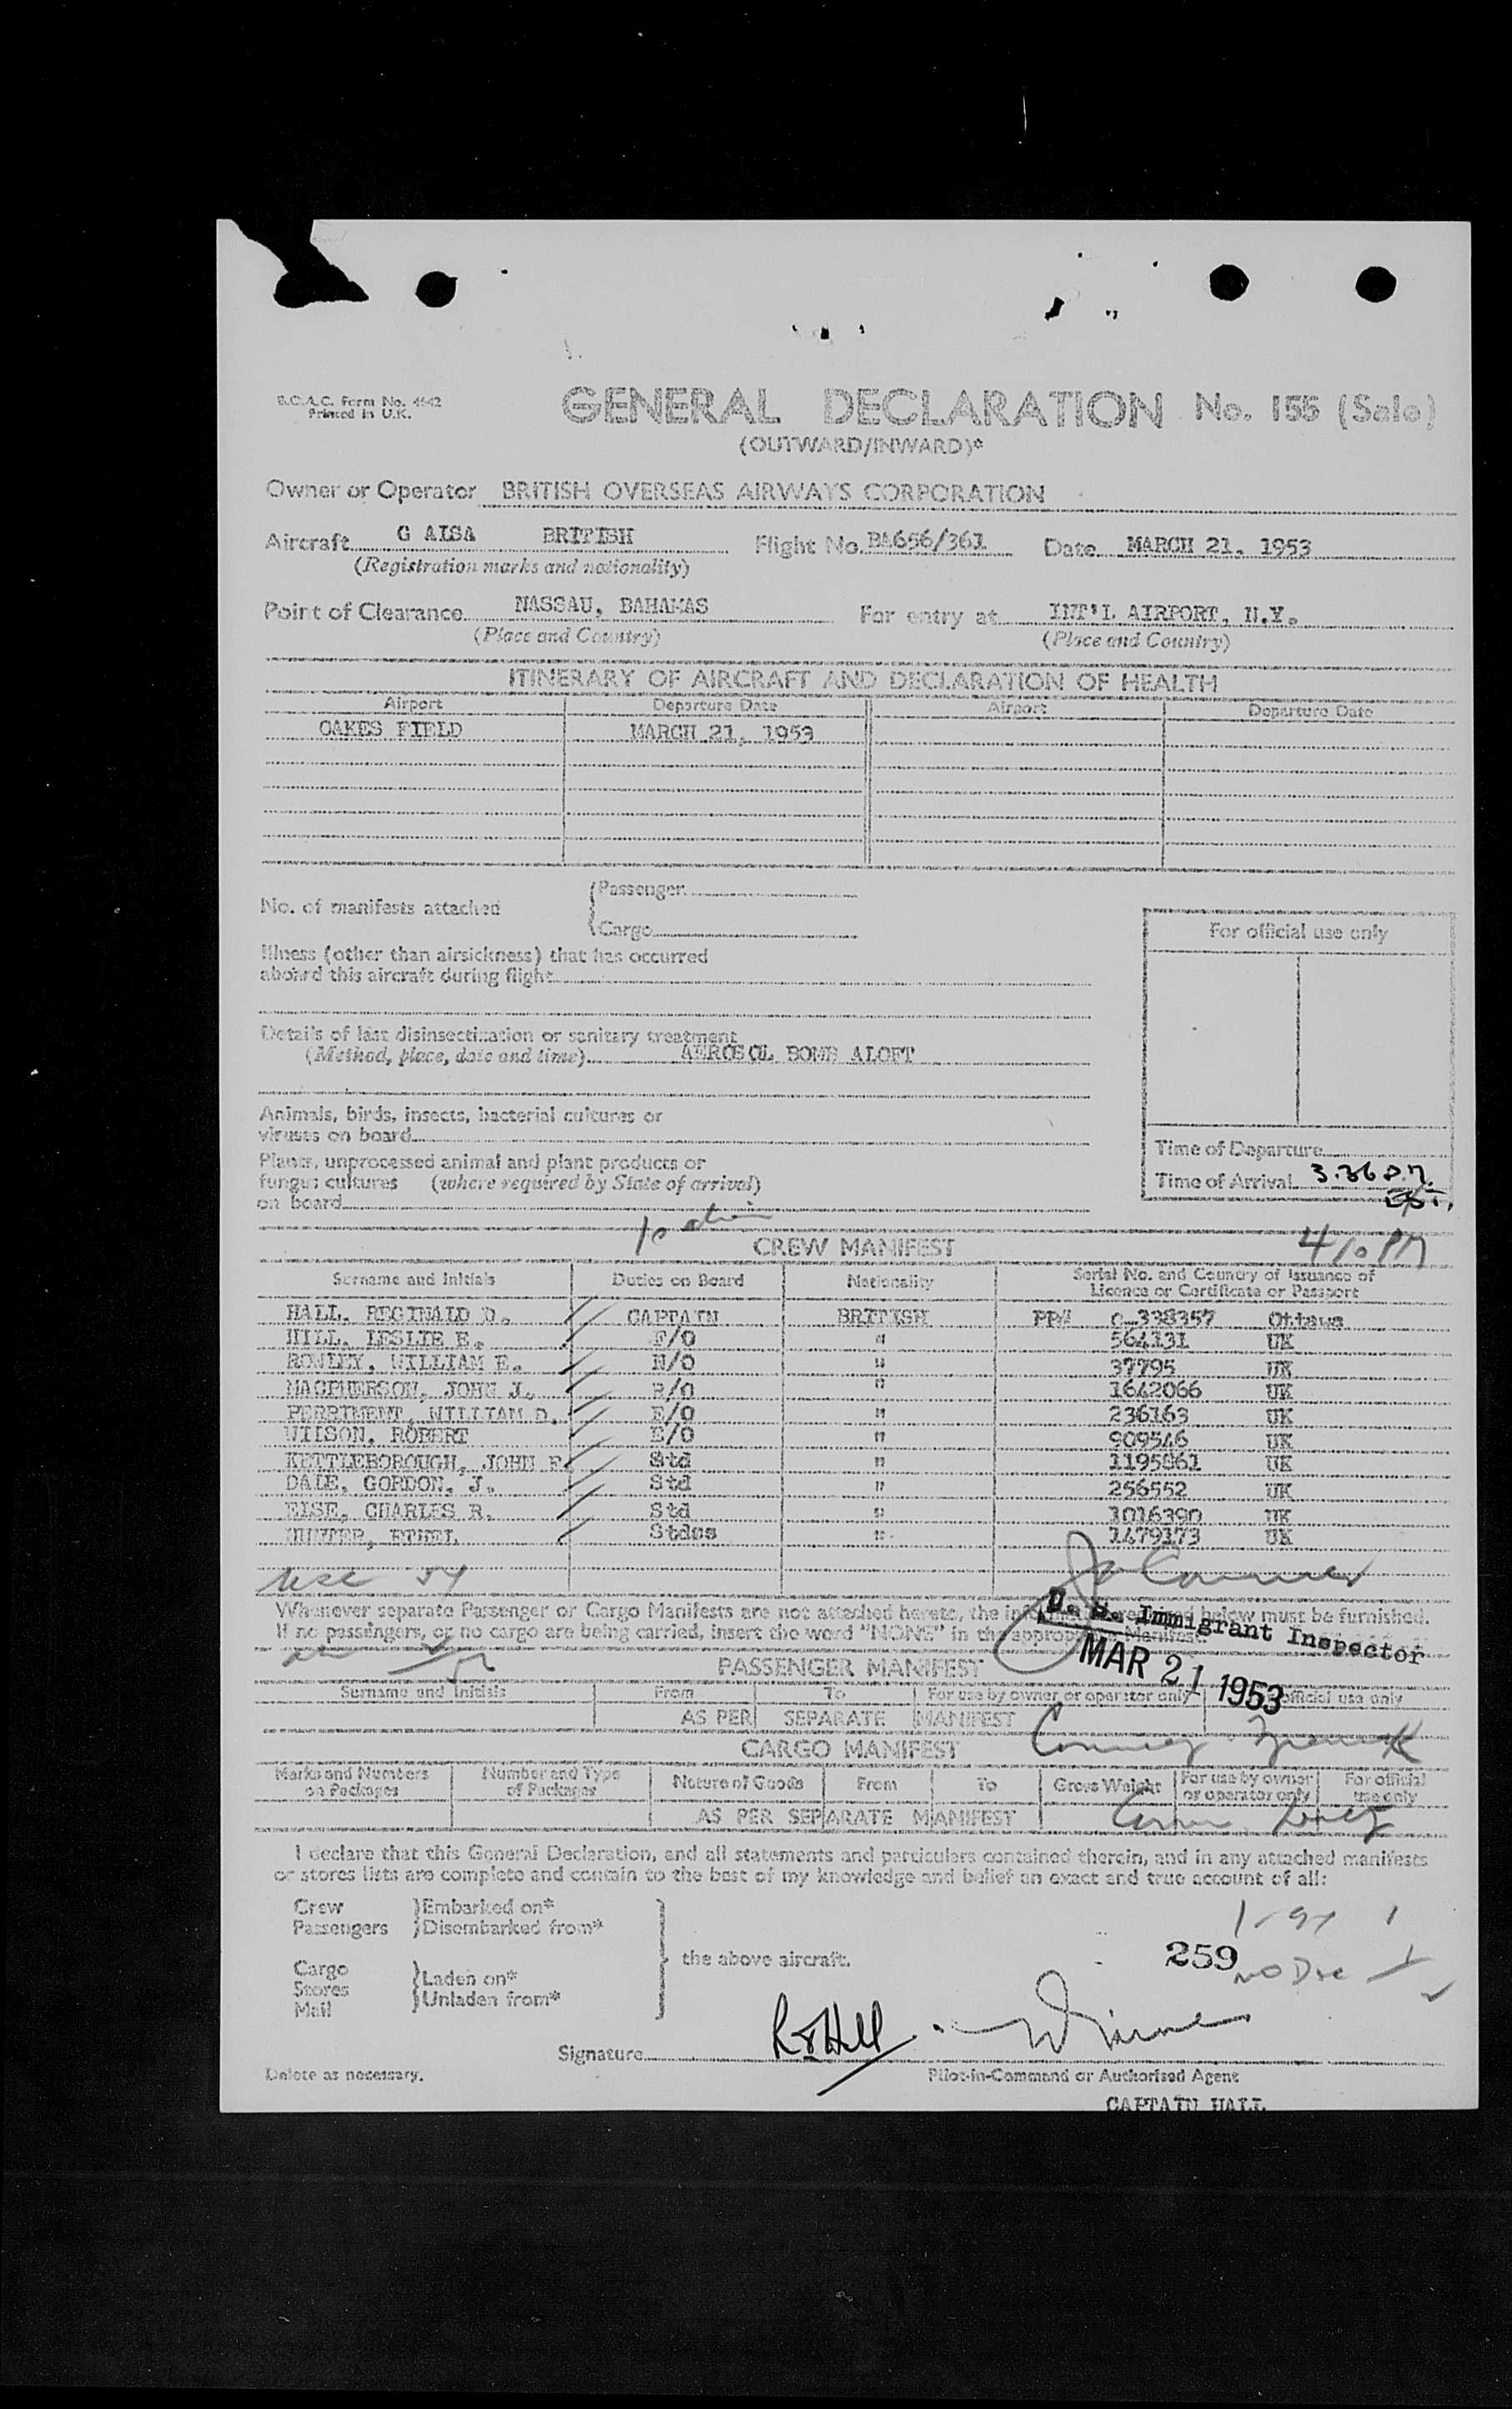 B.O.A.C. Form No. 4642
Printed in U.K.
GENERAL DECLARATION No. 155 (Sale)
(OUTWARD/INWARD)*
Owner or Operator BRITISH OVERSEAS AIRWAYS CORPORATION
Aircraft G AISA BRITISH Flight No. BA656/361 Date MARCH 21, 1953
(Registration marks and nationality)
Point of Clearance NASSAU, BAHAMAS For entry at INT'L AIRPORT, N.Y.
(Place and Country) (Place and Country)
ITINERARY OF AIRCRAFT AND DECLARATION OF HEALTH
Airport Departure Date Airport Departure Date
OAKES FIELD MARCH 21, 1953
No. of manifests attached
Passenger
Cargo
For official use only
Illness (other than airsickness) that has occurred
aboard this aircraft during flight
Details of last disinsectization or sanitary treatment
(Method, place, date and time) AEROSOL BOMB ALOFT
Animals, birds, insects, bacterial cultures or
viruses on board
Time of Departure
Plants, unprocessed animal and plant products or
fungus cultures (where required by State of arrival)
on board
Time of Arrival 3.36 P.M.
EST.
10
4/10 PM
CREW MANIFEST
Surname and Initials Duties on Board Nationality Serial No. and Country of Issuance of
Licence or Certificate or Passport
HALL, REGINALD O. CAPTAIN BRITISH PPN C-338357 Ottawa
HILL, LESLIE E. F/O " 564131 UK
ROWLEY, WILLIAM E. N/O " 37795 UK
MACPHERSON, JOHN J. R/O " 1642066 UK
PERRIMENT, WILLIAM D. E/O " 236163 UK
WILSON, ROBERT E/O " 909546 UK
KETTLEBOROUGH, JOHN F. Std " 1195861 UK
DALE, GORDON, J. Std " 256552 UK
EISE, CHARLES R. Std " 1016390 UK
HUNTER, ETHEL Stdss " 1479173 UK
Whenever separate Passenger or Cargo Manifests are not attached hereto, the below must be furnished.
If no passengers, or no cargo are being carried, insert the word "NONE" in the Manifest.
U. S. Immigrant Inspector
MAR 21 1953
PASSENGER MANIFEST
Surname and Initials From To For use by owner or operator only official use only
AS PER SEPARATE MANIFEST
CARGO MANIFEST
Marks and Numbers
on Packages Number and Type
of Packages Nature of Goods From To Gross Weight For use by owner
or operator only For official
use only
AS PER SEPARATE MANIFEST
I declare that this General Declaration, and all statements and particulars contained therein, and in any attached manifests
or stores lists are complete and contain to the best of my knowledge and belief an exact and true account of all:
Crew Embarked on*
Passengers Disembarked from*
the above aircraft.
Cargo
Stores
Mail
Laden on*
Unladen from*
259
Signature
Delete as necessary. Pilot-in-Command or Authorised Agent
CAPTAIN HALL